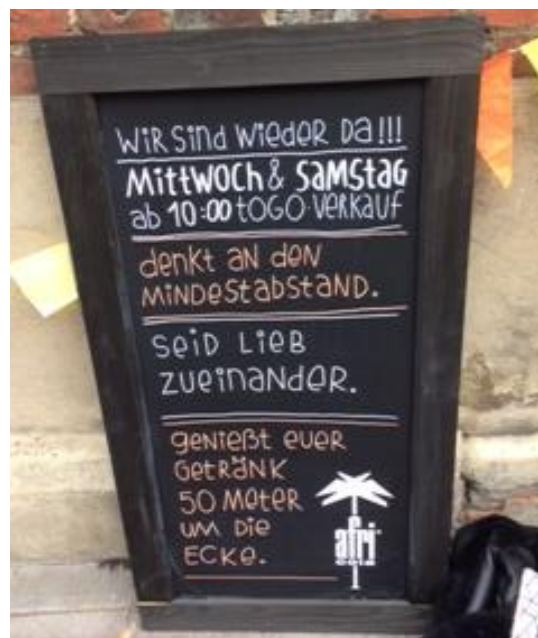 WIR SIND WIEDER DA!!!
MITTWOCH & SAMSTAG
ab 10:00 TOGO VERKAUF
denkt AN deN
MINDESTABSTAND.
SEID LIEB
ZUEINANDER.
GENIEßT EUER
GETRÄNK
50 METER
UM DIE
ECKE.
afri
COLA